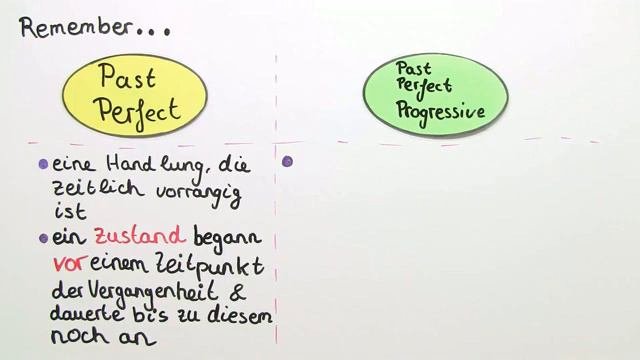 Remember...
Past
Perfect
Past
Perfect
Progressive
eine Handlung, die
zeitlich vorrangig
ist
ein Zustand begann
vor einem Zeitpunkt
der Vergangenheit &
dauerte bis zu diesem
noch an